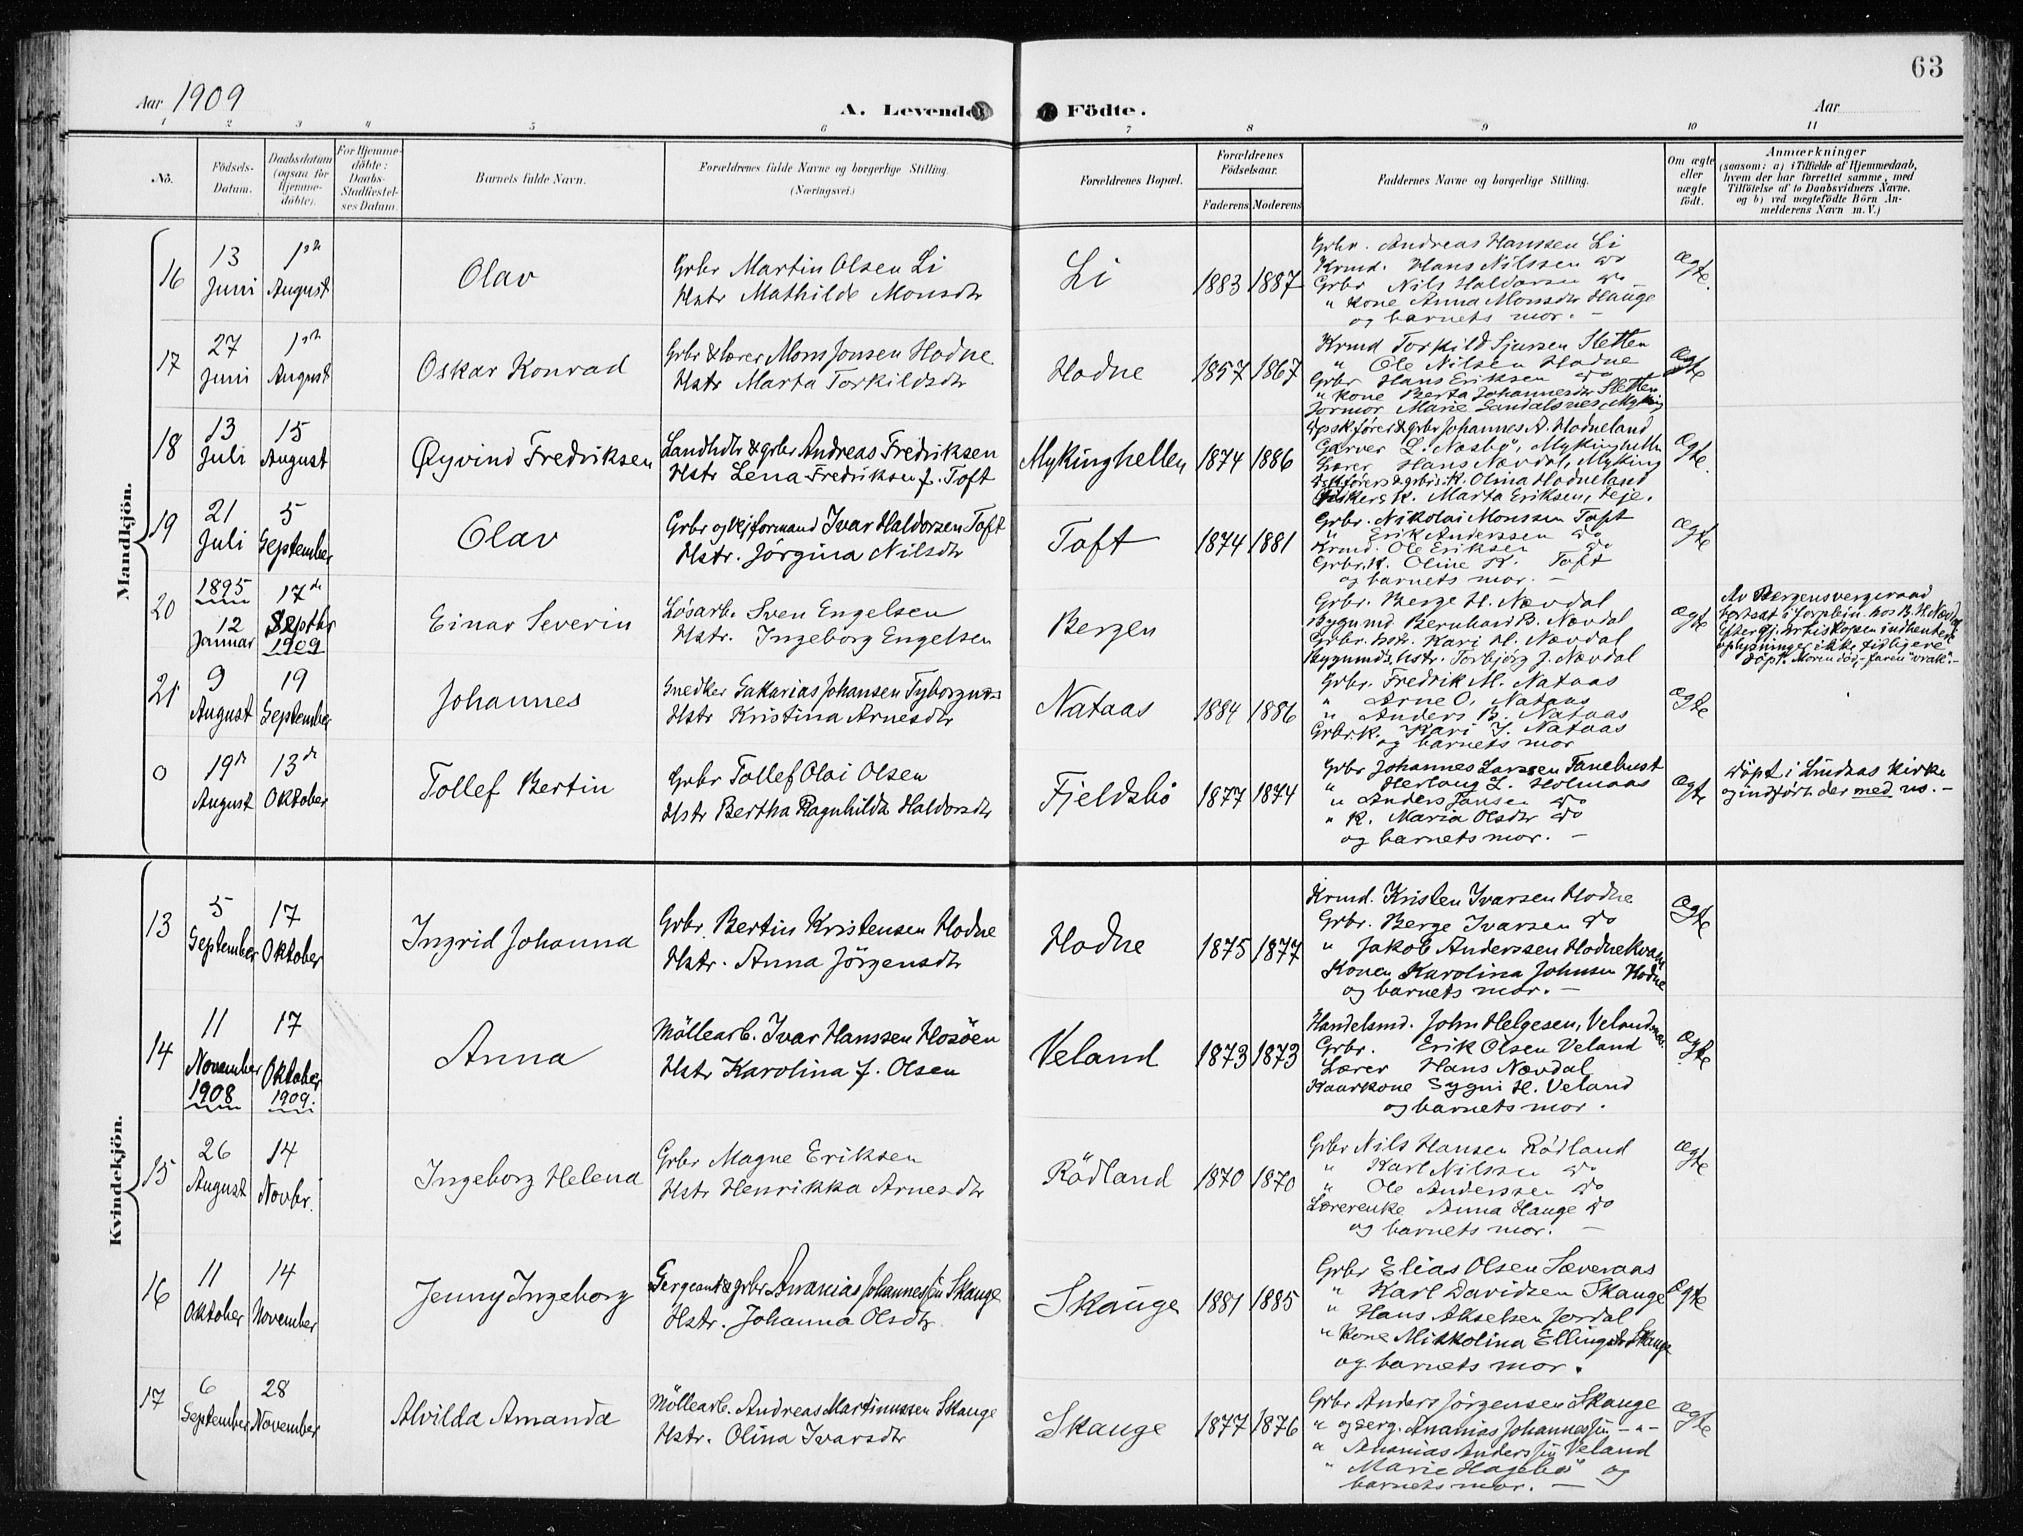 63
Aar 1909
A. Levende Födte.
Aar
1 2 3 4 5 6 7 8 9 10 11
No.
Födsels-Datum.
Daabsdatum (ogsaa for Hjemme-döbte).
For Hjemme-döbte: Daabs-Stadfæstel-ses Datum.
Barnets fulde Navn.
Forældrenes fulde Navne og borgerlige Stilling. (Næringsvei.)
Forældrenes Bopæl.
Forældrenes Födselsaar.
Faderens Moderens
Faddernes Navne og borgerlige Stilling.
Om ægte eller uægte födt.
Anmærkninger
(saasom: a) i Tilfælde af Hjemmedaab,
hvem der har forrettet samme, med
Tilföielse af to Daabsvidners Navne.
og b) ved uægtefödte Börn An-
melderens Navn m. V.)
Mandkjön.
16
13 Juni
1ste August
Olav
Grbr Martin Olsen Li
Hstr Mathilde Monsdtr
Li
1883 1887
Grbr. Andreas Hanssen Li
Krmd. Hans Nilssen do
Grbr Nils Haldorsen do
" Kone Anna Monsdtr Hauge
og barnets mor. –
Ægte.
17
27 Juni
1ste August
Oskar Konrad
Grbr & lærer Mons Jonsen Hodne
Hstr Marta Torkildsdtr
Hodne
1857 1867
Krmd Torkild Sjursen Sletten
" Ole Nilsen Hodne
Grbr Hans Eriksen do
" Kone Berta Johannesdtr Sletten
Jormor Marie Myking
Ægte
18
13 Juli
15 August
Øyvind Fredriksen
Landhdlr & grbr Andreas Fredriksen
Hstr Lena Fredriksen f. Toft
Mykinghellen
1874 1886
Dpskfører & grbr Johannes A. Hodneland
Garver L. Næsbö, Mykinghellen
Lærer Hans Nævdal, Myking
Olina Hodneland
K. Marta Eriksen, Leje.
Ægte.
19
21 Juli
5 September
Olav
Grbr og Vejformand Ivar Haldorsen Toft
Hstr. Jörgina Nilsdtr
Toft
1874 1881
Grbr. Nikolai Monssen Toft
" Erik Anderssen do
Krmd. Ole Eriksen do
Grbr. K. Oline K. Toft
og barnets mor. –
Ægte
20
1895 12 Januar
17de Septbr 1909
Einar Severin
Løsarb. Sven Engelsen
Hstr. Ingeborg Engelsen
Bergen
Grbr. Berge H. Nævdal
Bygnmd Bernhard B. Nævdal
Grbr. Kari H. Nævdal
Bygnmds. hstr. Torbjörg J. Nævdal
Ægte
Av Bergens vergeraad
bortsat i forplein. hos B. H. Nævdal
Efter indhentede
oplysninger ikke tidligere
döpt. Moren död, faren "vrak". –
21
9 August
19 September
Johannes
Snedker Sakarias Johansen Tyborgnes
Hstr Kristina Arnesdtr
Nataas
1884 1886
Grbr. Fredrik M. Nataas
" Arne O. Nataas
" Anders B. Nataas
Grbrk. Kari J. Nataas
og barnets mor
Ægte
0
19de August
13de Oktober
Tollef Bertin
Grbr Tollef Olai Olsen
Hstr Bertha Ragnhilda Haldorsdtr
Fjeldsbö
1877 1874
Grbr Johannes Larssen Fanebust
" Herlaug L. Holmaas
" Anders Jansen do
" K. Maria Olsdtr do
og barnets mor. –
Ægte
Döpt i Lindaas Kirke
og indført der med no. –
Kvindekjön.
13
5 September
17 Oktober
Ingrid Johanna
Grbr. Bertin Kristensen Hodne
Hstr. Anna Jörgensdtr
Hodne
1875 1877
Krmd. Kristen Ivarsen Hodne
Grbr. Berge Ivarsen do
" Jakob Anderssen Hodnekvam
Konen Karolina Johnsen Hodne
og barnets mor. –
Ægte
14
11 November 1908
17 Oktober 1909.
Anna
Möllearb. Ivar Hanssen Hosöen
Hstr Karolina f. Olsen
Veland
1873 1873
Handelsmd. John Helgesen, Velandnæs.
Grbr. Erik Olsen Veland
Lærer Hans Nævdal
Kaarkone Sygni H. Veland
og barnets mor.
Ægte
15
26 August
14 Novbr.
Ingeborg Helena
Grbr Magne Eriksen
Hstr Henrikka Arnesdtr
Rödland
1870 1870
Grbr Nils Hansen Rödland
" Karl Nilssen do
" Ole Anderssen do
Lærerenke Anna Hauge do
og barnets mor. –
Ægte
16
11 Oktober
14 November
Jenny Ingeborg
Sergeant & grbr Ananias Johannessen Skauge
Hstr. Johanna Olsdtr
Skauge
1881 1885
Grbr Elias Olsen Sæveraas
" Karl Davidsen Skauge
" Hans Akselsen Jordal
" Kone Mikkolina Ellingsdtr Skauge
og barnets mor.
Ægte
17
6 September
28 November
Alvilda Amanda
Möllearb. Andreas Martinussen Skauge
Hstr. Olina Ivarsdtr
Skauge
1877 1876
Grbr Anders Jörgensen Skauge
" og serg. Ananias Johannessen – " –
" Ananias Anderssen Veland
" Marie Hagebö og
barnets mor. –
Ægte